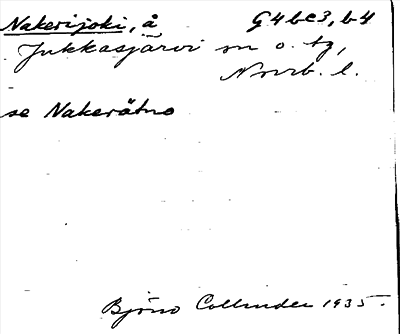 Nakerijoki, å G4bc3, b4
Jukkasjärvi sn o. tg,
Norrb. l.
se Nakerätno
Björno Collinder 1935.